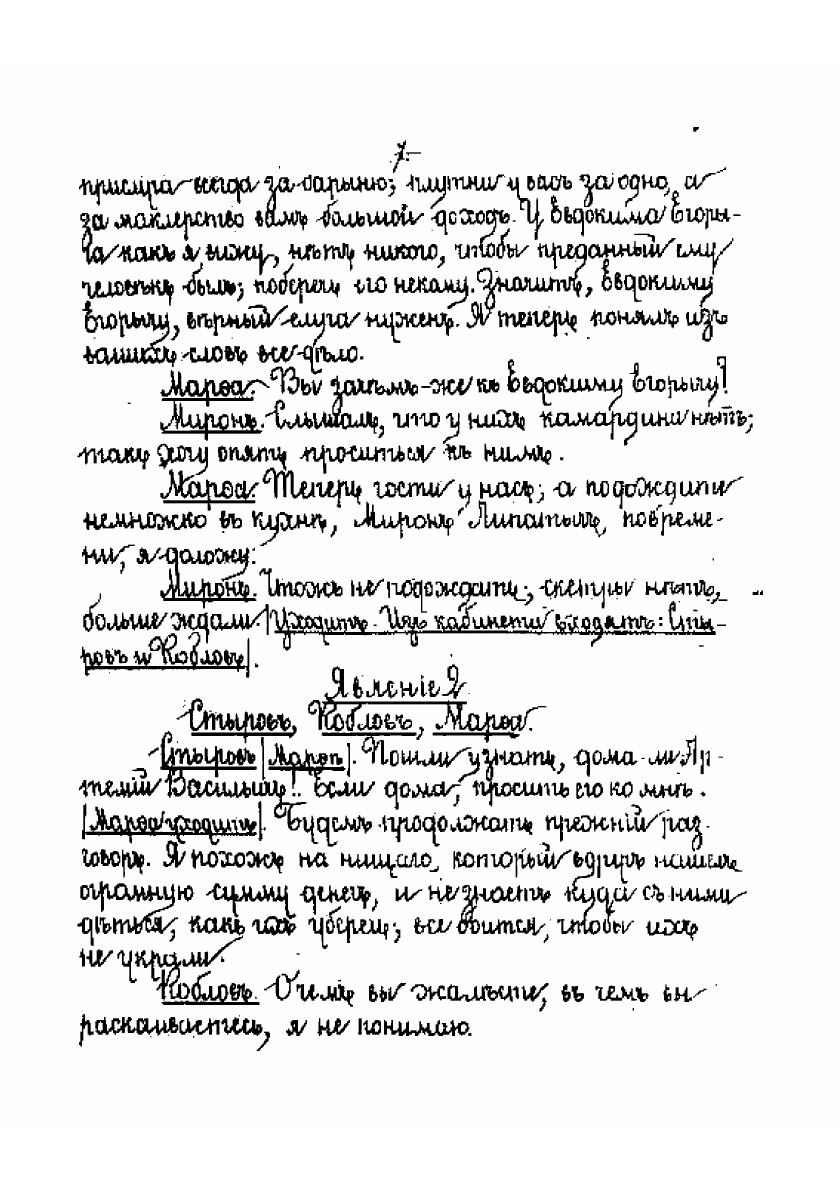 7.-
присмра всегда за барыню; плутни у васъ за одно, а
за маклерство вамъ большой доходъ. У Евдокима Егоры-
ча какъ я вижу, нѣтъ никого, чтобы преданный ему
человѣкъ былъ; поберечь его некому. Значитъ, Евдокиму
Егорычу, вѣрный слуга нуженъ. Я теперь понялъ изъ
вашихъ словъ все дѣло.
Марѳа. Вы зачѣмъ-же къ Евдокиму Егорычу?
Миронъ. Слышалъ, что у нихъ камардина нѣтъ;
такъ хочу опять проситься къ нимъ.
Марѳа. Теперь гости у насъ; а подождити
немножко въ кухнѣ, Миронъ Липатычъ, повреме-
ни, я доложу.
Миронъ. Чтожъ не подождать; скетры нѣтъ,
больше ждали. |Уходитъ. Изъ кабинета входятъ: Сты-
ровъ и Кобловъ|.
Явленіе 2
Стыровъ, Кобловъ, Марѳа.
Стыровъ |Марѳѣ|. Пошли узнать, дома-ли Ар-
темій Васильичъ!. Если дома, просить его ко мнѣ.
|Марѳа уходитъ|. Будемъ продолжать прежній раз-
говоръ. Я похожъ на нищаго, который вдругъ нашелъ
ограмную сумму денегъ, и не знаетъ куда съ ними
дѣться, какъ ихъ уберечь; все боится, чтобы ихъ
не украли.
Кобловъ. О чемъ вы жалѣете, въ чемъ вы
раскаиваетесь, я не понимаю.